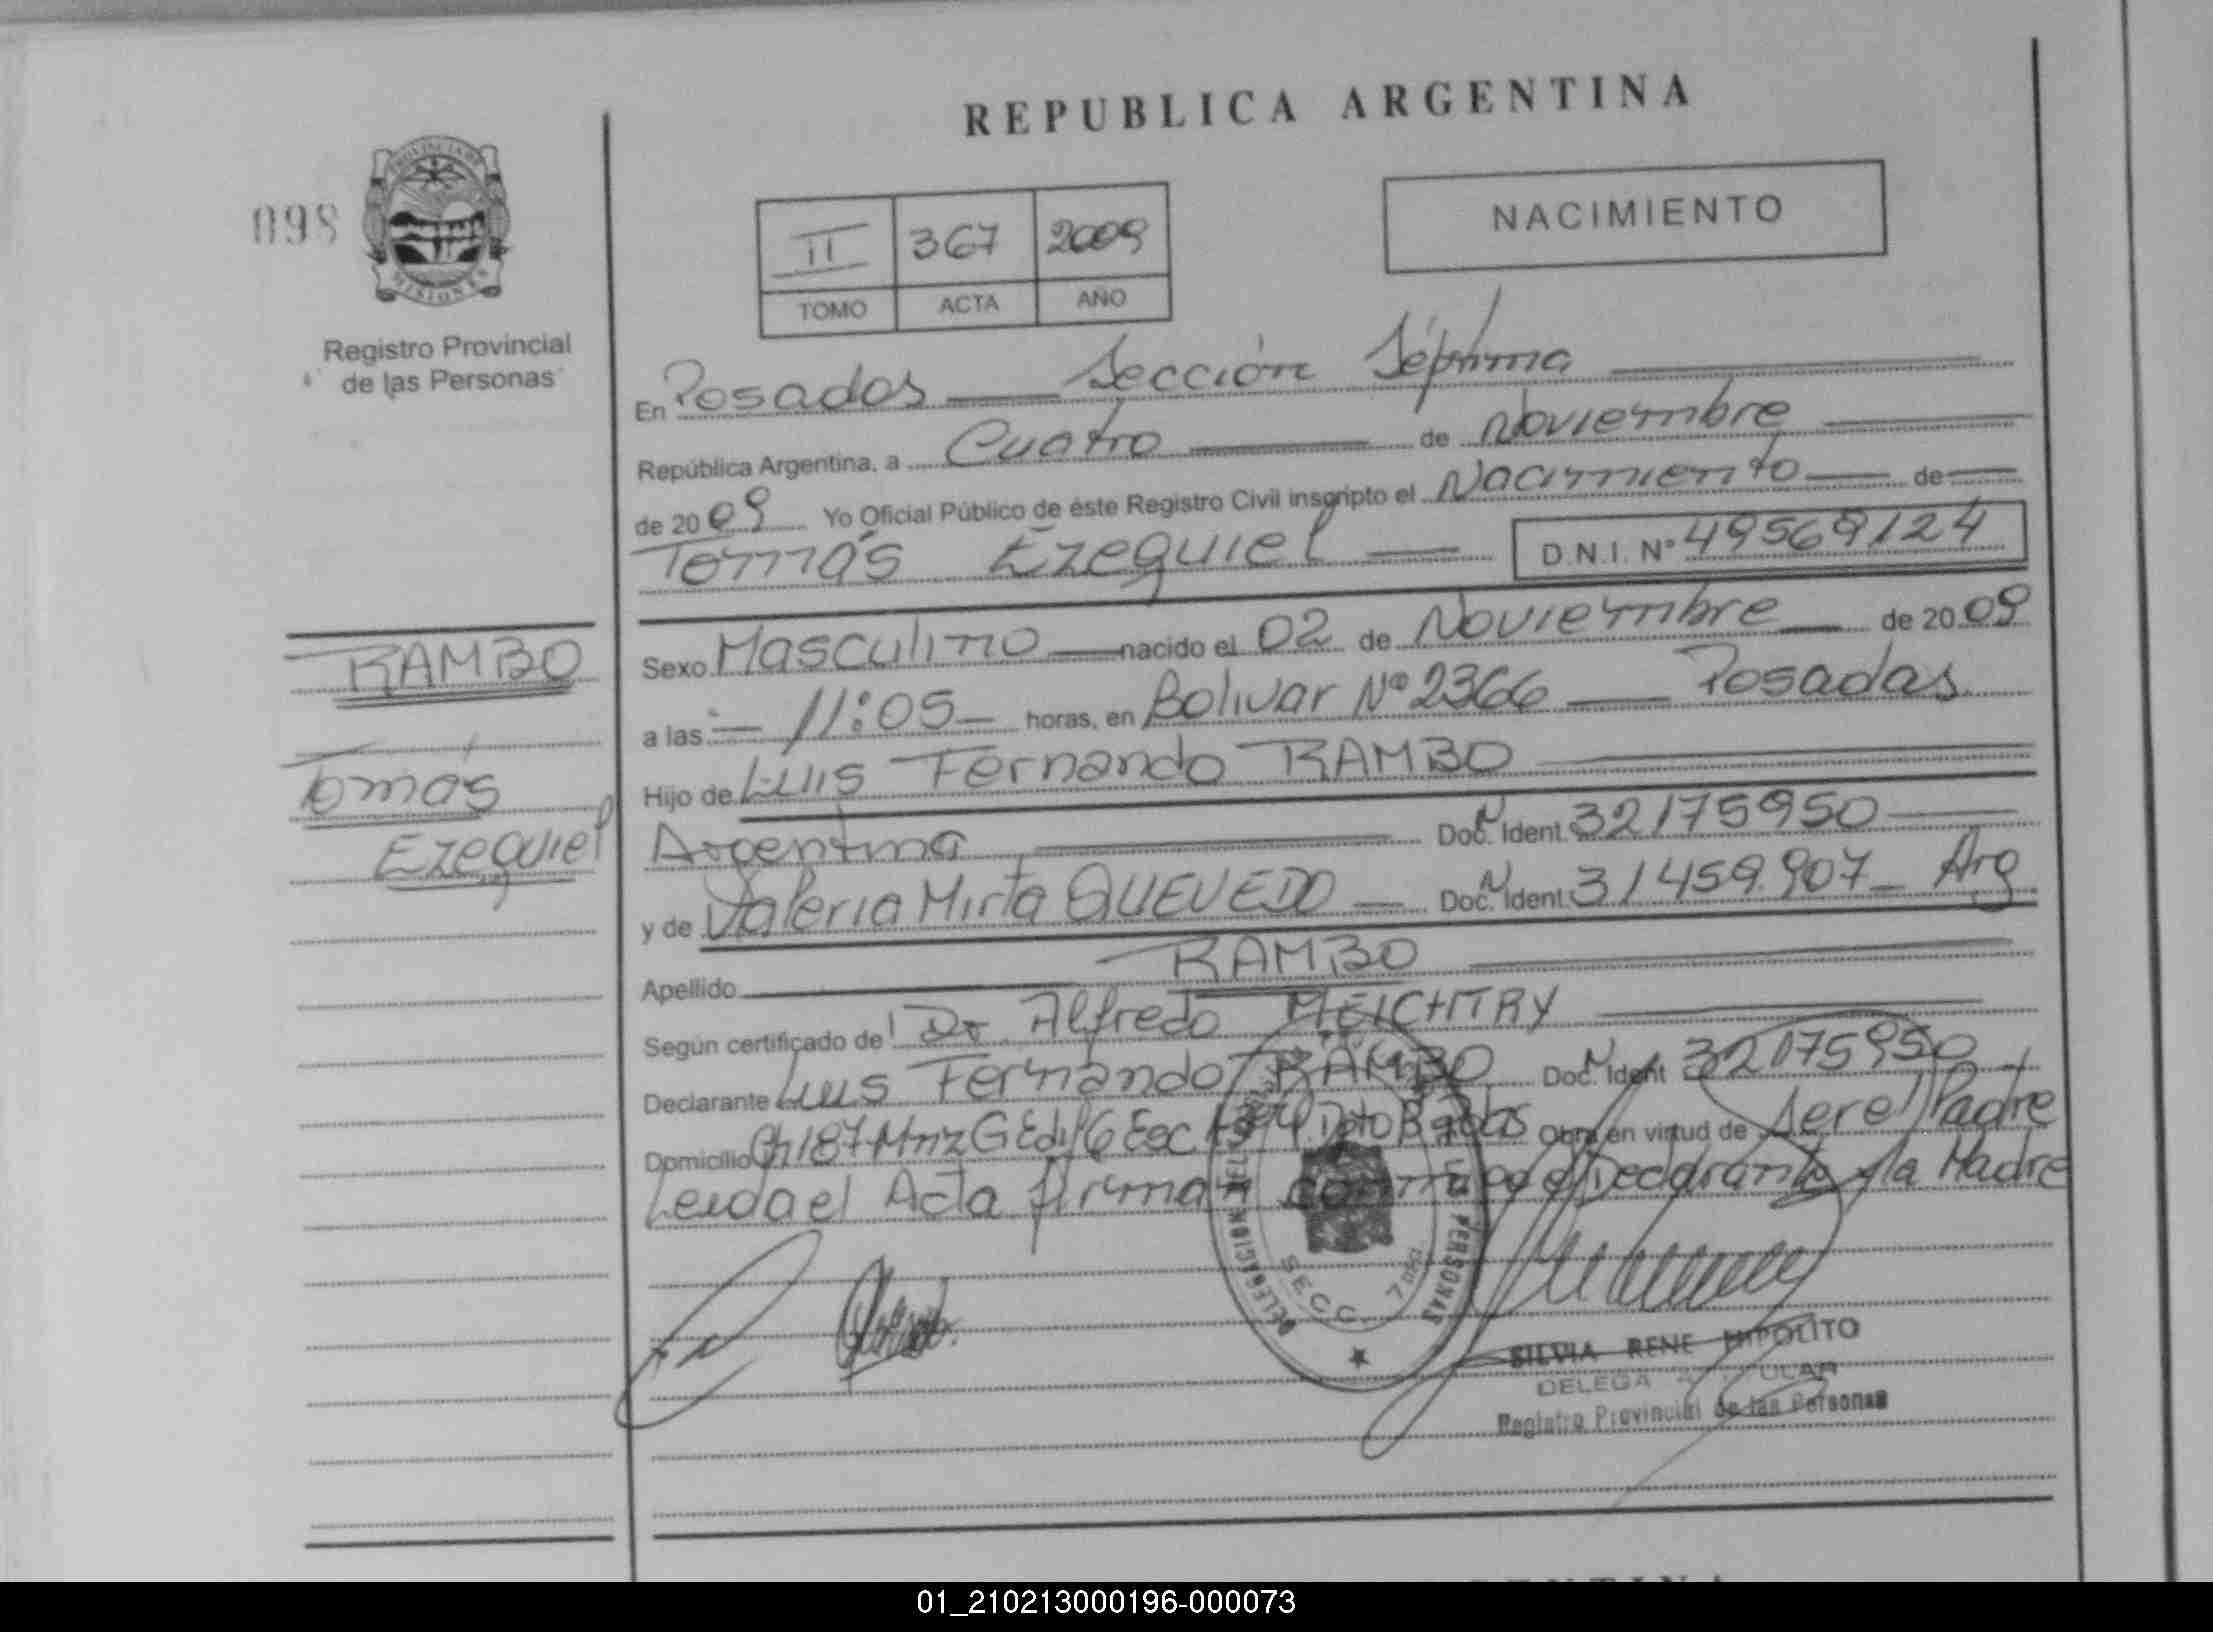 REPUBLICA ARGENTINA
098
PROVINCIA DE
MISIONES
Registro Provincial
de las Personas
II 367 2009
TOMO ACTA AÑO
NACIMIENTO
En Posadas Sección Séptima
República Argentina, a Cuatro de Noviembre
de 2009 Yo Oficial Público de éste Registro Civil inscripto el Nacimiento de
Tomás Ezequiel D.N.I. Nº 49569124
RAMBO
Tomás
Ezequiel
Sexo Masculino nacido el 02 de Noviembre de 2009
a las 11:05 horas, en Bolivar Nº 2366 Posadas
Hijo de Luis Fernando RAMBO
Argentina Doc. Ident. 32175950
y de Valeria Mirta QUEVEDO Doc. Ident. 31459.907 Arg
Apellido RAMBO
Según certificado de Dr. Alfredo MEICHTRY
Declarante Luis Fernando RAMBO Doc. Ident 32175950
Domicilio Ch187 Mnz G Edif 6 Esc Dpto B Obra en virtud de ser el Padre
Leida el Acta firman conmigo el Declarante y la Madre
DELEGACION DEL PERSONAS
SECC. 7ma
SILVIA RENE HIPOLITO
DELEGA TITULAR
Registro Provincial de las Personas
01_210213000196-000073